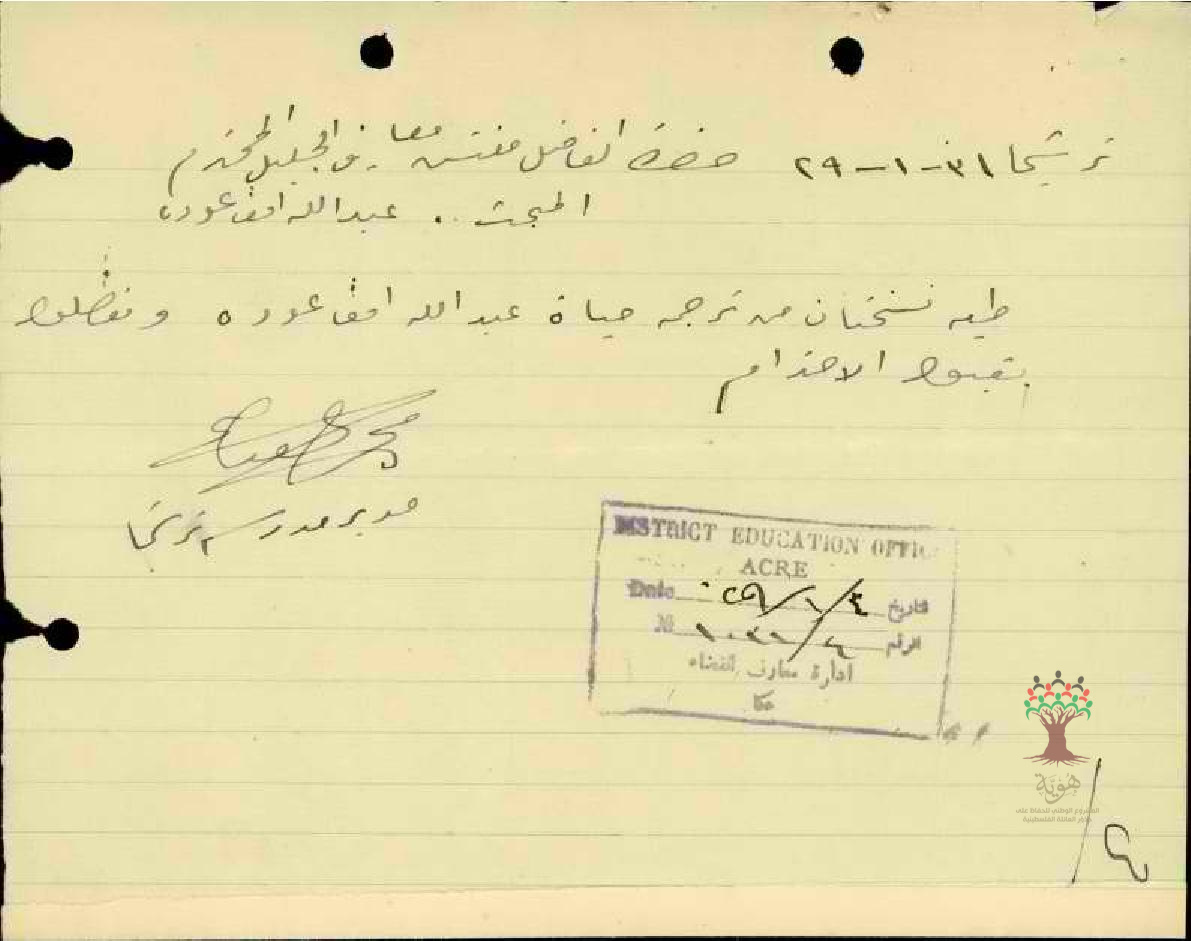 ترشيحا ٣١-١-٢٩ حضرة الفاضل مفتش معارف الجليل المحترم
المبحث .. عبد الله افندي عوده
طيه نسختان من ترجمه حياة عبد الله افندي عوده وتفضلوا
بقبول الاحترام
مدير مدرسة ترشيحا
DISTRICT EDUCATION OFFICE
ACRE
Date ٢٩/١/٤ تاريخ
№ الرقم
ادارة معارف القضاء
عكا
هُوِيَّة
المشروع الوطني للحفاظ على
جذور العائلة الفلسطينية